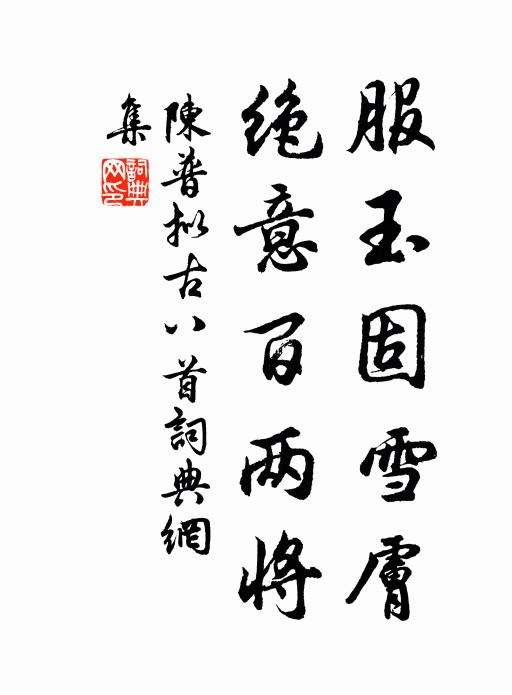 服玉固雪膚
絶意百两將
陳普拟古八首詞典網
集
詞典网印